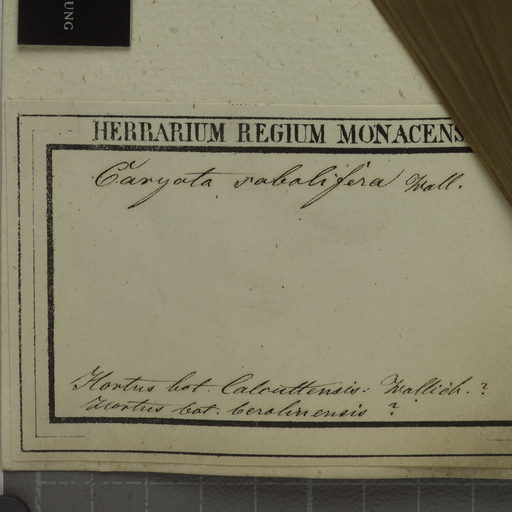 UNG
HERBARIUM REGIUM MONACENS
Caryota sobolifera Wall.
Hortus bot. Calcuttensis: Wallich. ?
Hortus bot. berolinensis ?